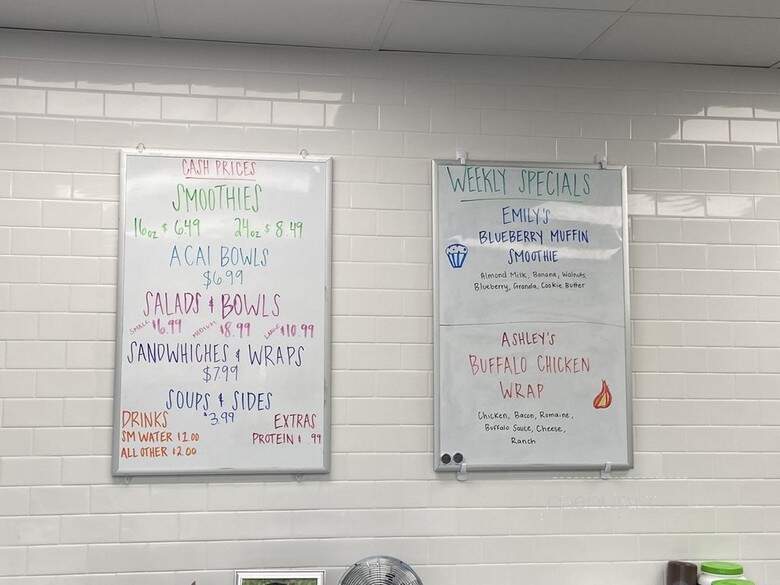 CASH PRICES
SMOOTHIES
16oz $ 6.49 24oz $ 8.49
ACAI BOWLS
$6.99
SALADS & BOWLS
SMALL $6.99 MEDIUM $8.99 LARGE $10.99
SANDWHICHES & WRAPS
$7.99
SOUPS & SIDES
$3.99
DRINKS
SM WATER $2.00
ALL OTHER $2.00
EXTRAS
PROTEIN $ .99
WEEKLY SPECIALS
EMILY'S
BLUEBERRY MUFFIN
SMOOTHIE
Almond Milk, Banana, Walnuts
Blueberry, Granola, Cookie Butter
ASHLEY'S
BUFFALO CHICKEN
WRAP
Chicken, Bacon, Romaine,
Buffalo Sauce, Cheese,
Ranch